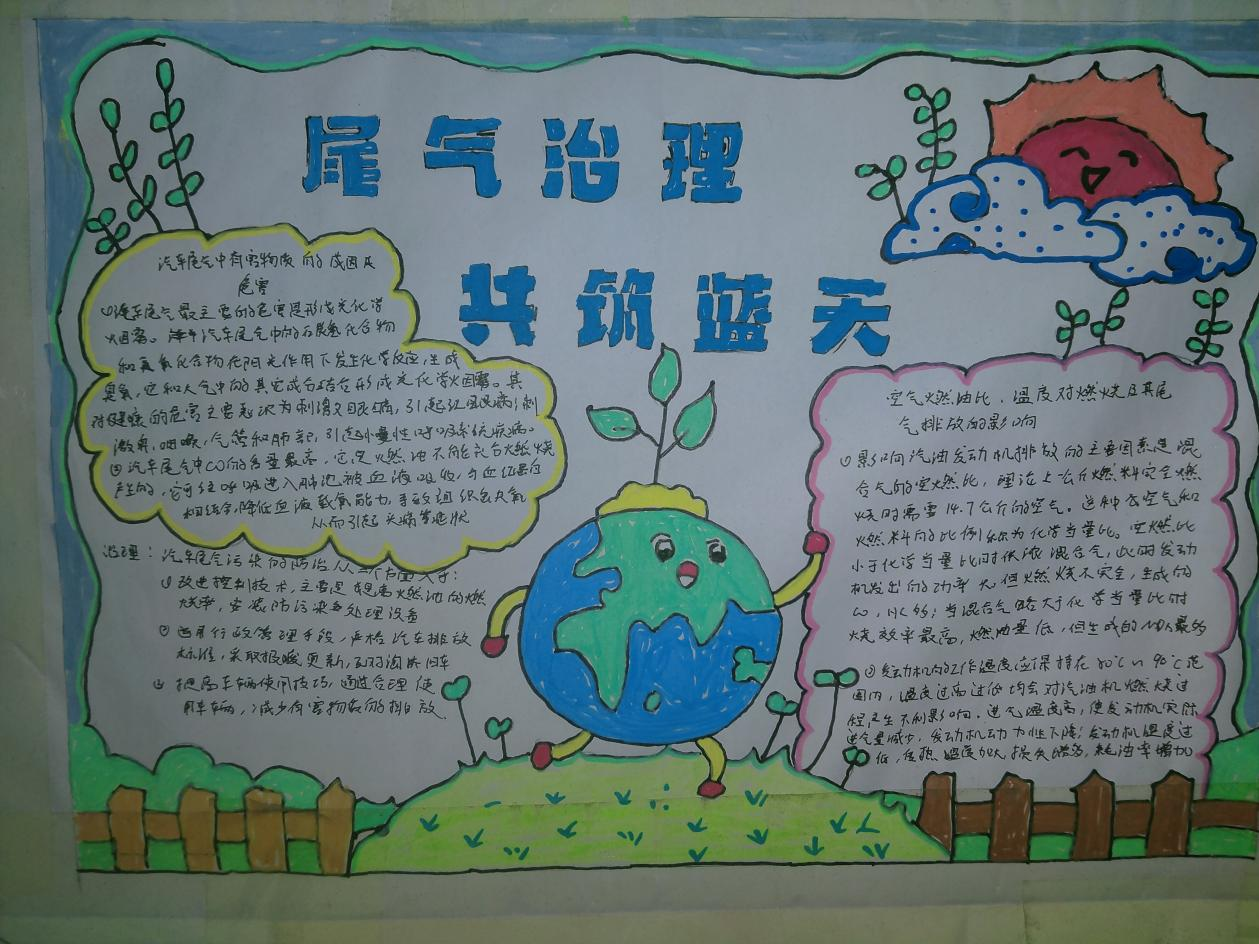 尾气治理
共筑蓝天
汽车尾气中有害物质的成因及
危害
①汽车尾气最主要的危害是形成光化学
烟雾。汽车尾气中的石炭氢化合物
和氮氧化合物在阳光作用下发生化学反应,生成
臭氧,它和大气中的其它成分结合形成光化学烟雾。其
对健康的危害主要表现为刺激眼睛,引起红眼病;刺
激鼻,咽喉,气管和肺部,引起慢性呼吸系统疾病。
②汽车尾气中CO的含量最高,它是燃油不能充分燃烧
产生的,它可经呼吸进入肺泡被血液吸收,与血红蛋白
相结合,降低血液载氧能力,导致组织缺氧
从而引起头痛等症状
治理:汽车尾气污染的防治从三个方面入手:
①改进控制技术,主要是提高燃油的燃
烧率,安装防污染处理设备
②行政管理手段,严格汽车排放
标准,采取报废更新,淘汰旧车
提高车辆使用技巧,通过合理使
用车辆,减少有害物质的排放.
空气燃油比、温度对燃烧及其尾
气排放的影响
①影响汽油发动机排放的主要因素是混
合气的空燃比,理论上公斤燃料完全燃
烧时需要14.7公斤的空气。这种空气和
燃料的比例称为化学当量比。空燃比
小于化学当量比时供浓混合气,此时发动
机发出的功率大但燃烧不完全,生成的
CO,HC多;当混合气略大于化学当量比时
烧效率最高,燃油量低,但生成的NOx最多
②发动机的工作温度应保持在80℃~90℃范
围内,温度过高过低均会对汽油机燃烧过
程产生不利影响.进气温度高,使发动机实际
进气量减少,发动机动力性下降;发动机温度过
低,传热温度加大,损失增多,耗油率增加